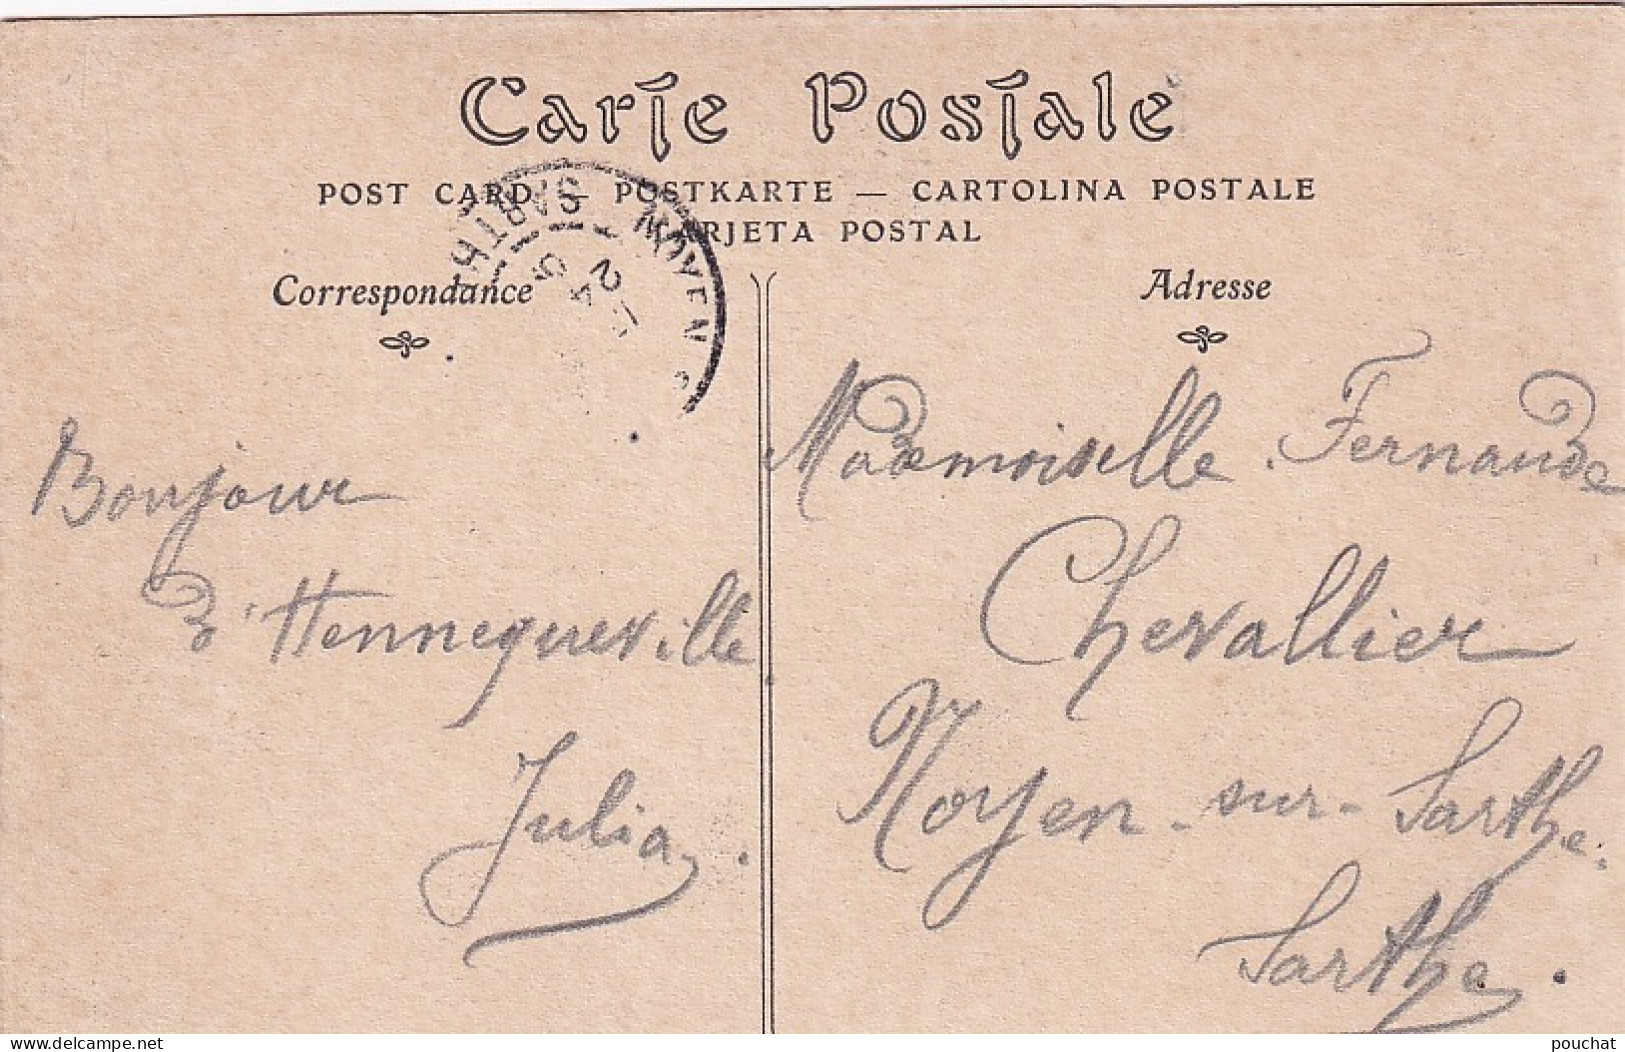 Carte Postale
POST CARD — POSTKARTE — CARTOLINA POSTALE
TARJETA POSTAL
Correspondance
Adresse
NOYEN S
SARTHE
Bonjour
d'Hennequeville
Julia.
Mademoiselle Fernande
Chevallier
Noyen-sur-Sarthe.
Sarthe.
www.delcampe.net
pouchat